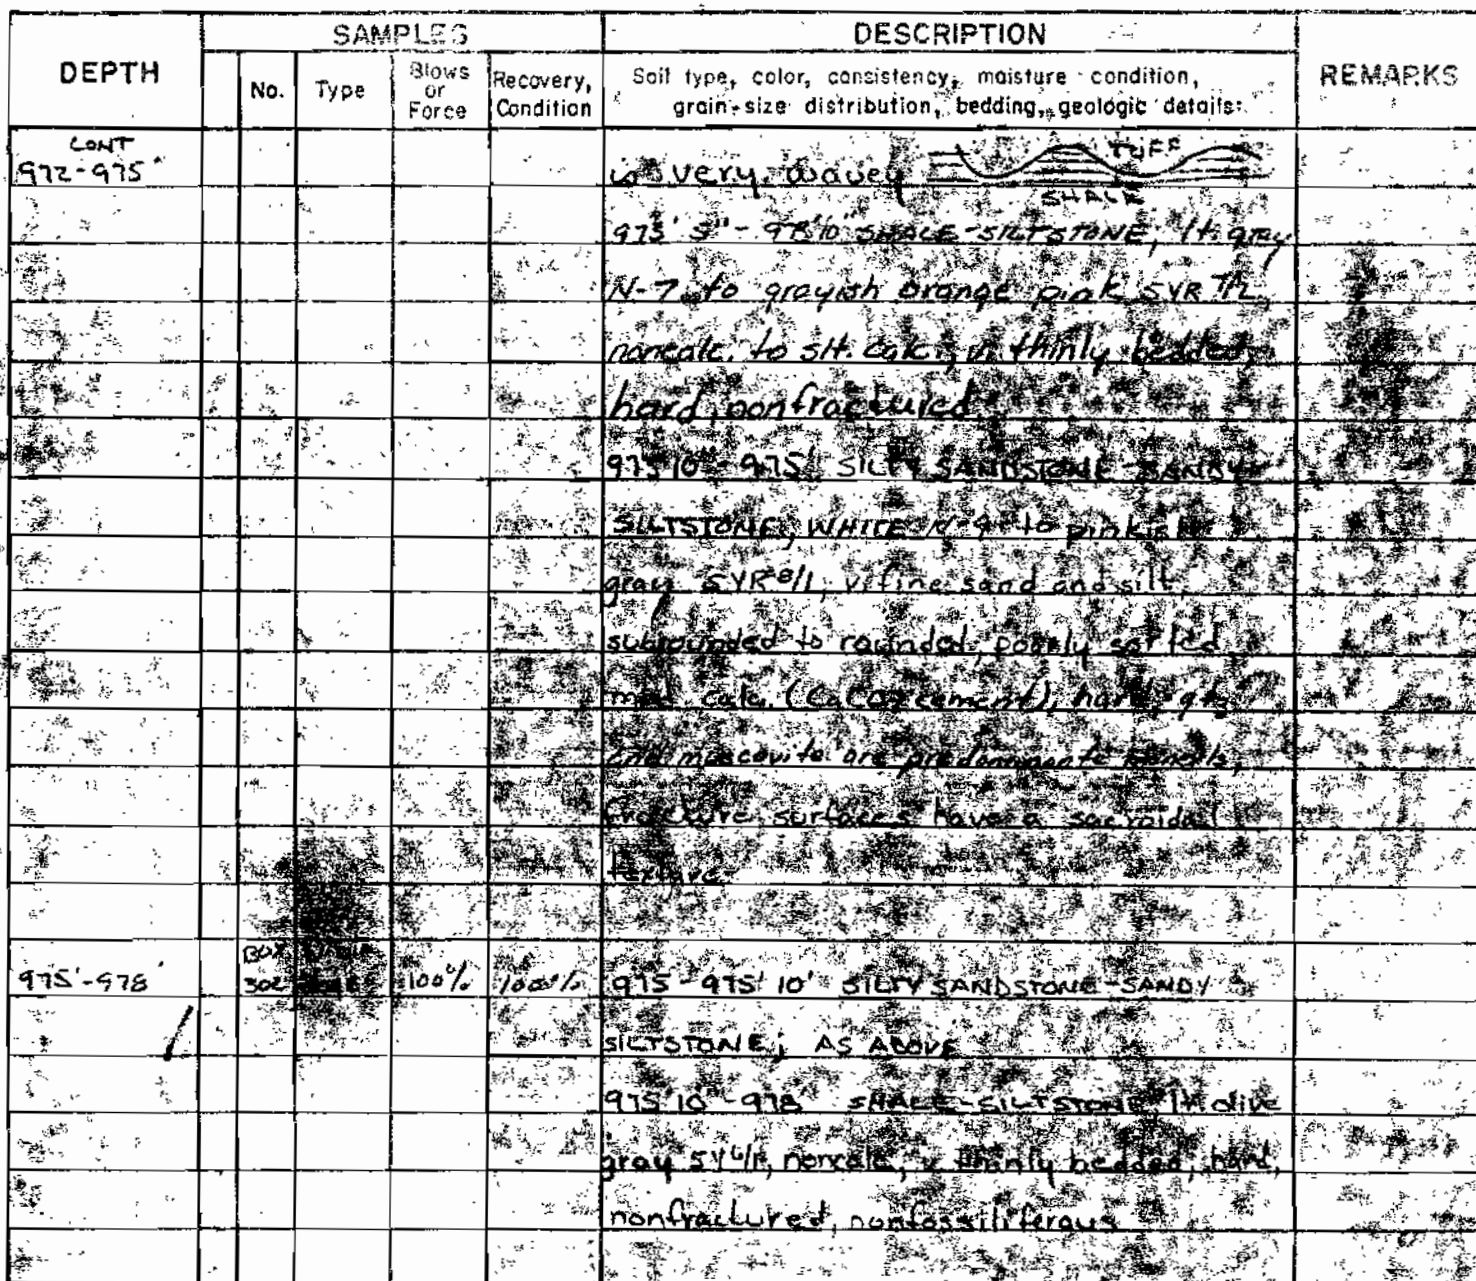 SAMPLES
DESCRIPTION
DEPTH
No.
Type
Blows or Force
Recovery, Condition
Soil type, color, consistency, moisture condition,
grain-size distribution, bedding, geologic details:
REMARKS
CONT
972-975'
is very wavey
TUFF
SHALE
SHALE-SILTSTONE, lt. gray
N-7 to grayish orange pink 5YR 7/2,
noncalc. to slt. calc., v. thinly bedded,
hard, nonfractured
SILTY SANDSTONE-SANDY
SILTSTONE, WHITE N-9 to pinkish
gray 5YR 8/1, v. fine sand and silt,
subrounded to rounded, poorly sorted
calc. (CaCO3 cement), hard, qtz
and muscovite are predominante
surfaces have a
texture
975'-978'
BOX
302
100%
100%
975'-975' 10" SILTY SANDSTONE-SANDY
SILTSTONE; AS ABOVE
975'10"-978' SHALE-SILTSTONE, lt. olive
gray 5Y 6/1, noncalc, v. thinly bedded, hard,
nonfractured, nonfossiliferous